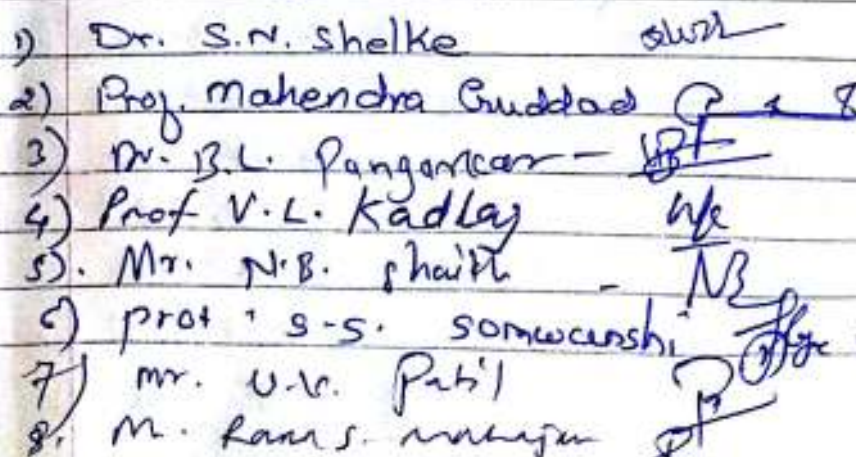 1) Dr. S.N. Shelke
2) Prof. Mahendra Guddad
3) Dr. B.L. Pangarkar -
4) Prof V.L. Kadlag
5). Mr. N.B. Shaikh -
6) prof. S.S. somwanshi
7) mr. U.V. Patil
8. M. Ram S. mahajan